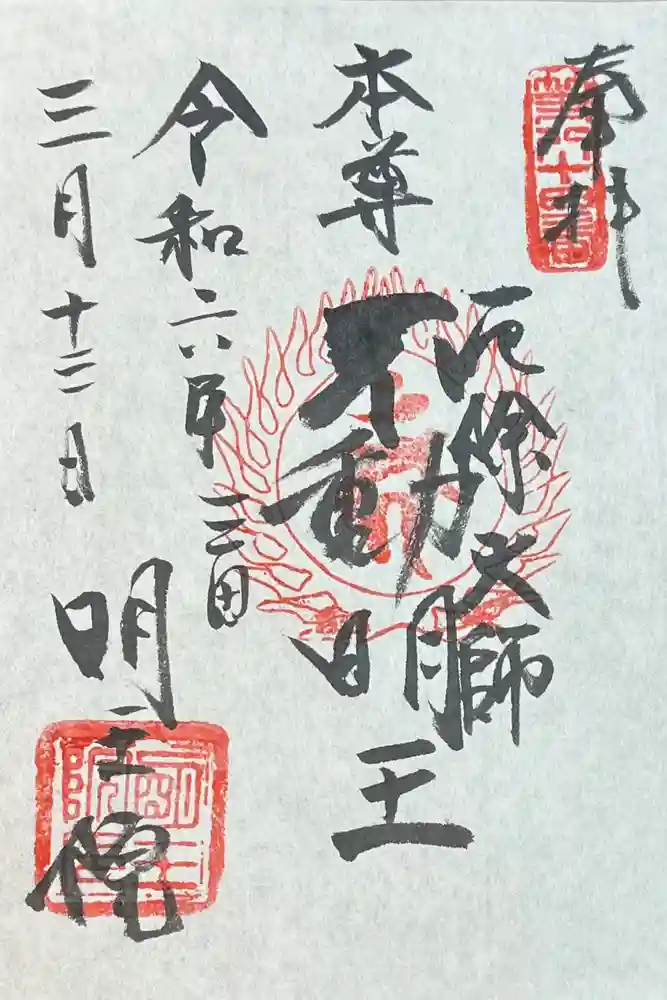 奉拝
厄除大師
本尊
不動明王
令和六年
三田
三月十二日
明王院